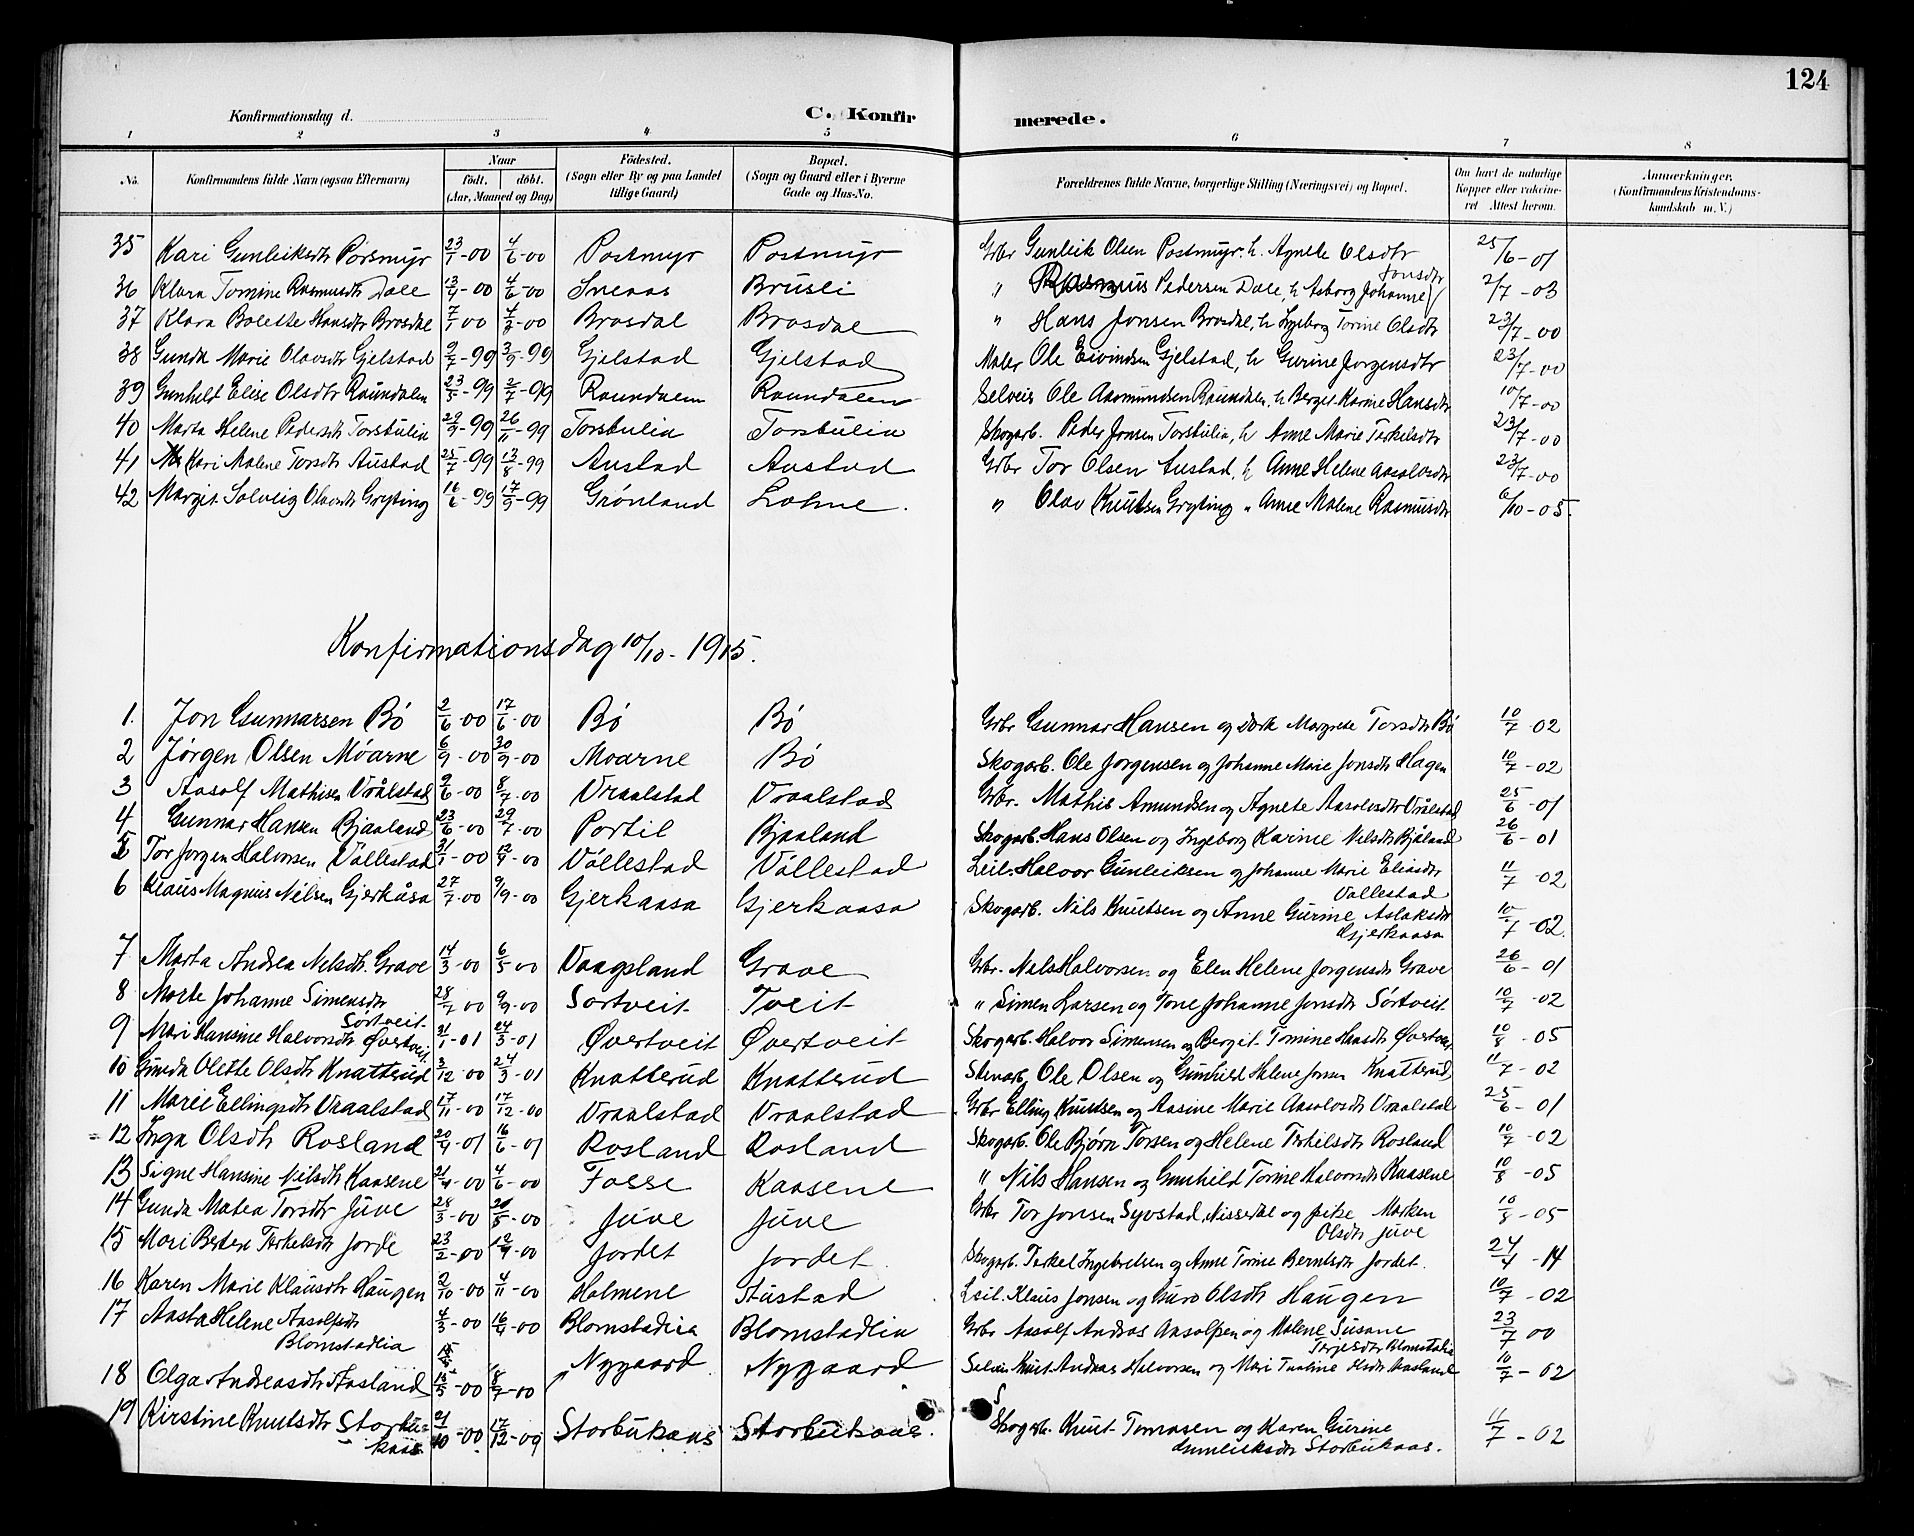 124
Konfirmationsdag d.
C. Konfirmerede.
1 2 3 4 5 6 7 8
No. Konfirmandens fulde Navn (ogsaa Efternavn) Naar født. døbt. (Aar, Maaned og Dag) Fødested. (Sogn eller By og paa Landet tillige Gaard) Bopæl. (Sogn og Gaard eller i Byerne Gade og Hus-No. Forældrenes fulde Navne, borgerlige Stilling (Næringsvei) og Bopæl. Om havt de naturlige Kopper eller vaccineret Attest herom. Anmærkninger. (Konfirmandens Kristendomskundskab m. V.)
35 Kari Gunleiksdtr Porsmyr 23/1-00 4/6-00 Postmyr Postmyr Grbr Gunleik Olsen Postmyr. h. Agnete Olsdtr 25/6-01
36 Klara Tomine Rasmusdtr Dale 13/4-00 4/6-00 Sneaas Brusli " Rasmus Pedersen Dale, h Asborg Johanne Jonsdtr 2/7-03
37 Klara Bolette Hansdtr Brosdal 7/1 00 4/3-00 Brosdal Brosdal " Hans Jonsen Brosdal, h Ingeborg Torine Olsdtr 23/7-00
38 Gunda Marie Olavsdtr Gjelstad 9/7-99 3/9-99 Gjelstad Gjelstad Maler Ole Eivindsen Gjelstad, h Gurine Jorgensdtr 23/7-00
39 Gunhild Elise Olsdtr Raundalen 23/5-99 2/7-99 Raundalen Raundalen Selveir Ole Aasmundsen Raundalen, h Berget Karine Hansdtr 10/7-00
40 Marta Helene Pedersdtr Torsbulia 29/9-99 26/11-99 Torsbulia Torsbulia Skogarb. Peder Jonsen Torsbulia, h Anne Marie Terkelsdtr 23/7-00
41 Kari Malene Torsdtr Austad 25/7-99 13/8-99 Austad Austad Grbr Tor Olsen Austad, h Anne Helene Aasolvsdtr 23/7-00
42 Margit Solveig Olavsdtr Gryting 16/6-99 17/9-99 Grönland Lohne. " Olav Knutsen Gryting " Anne Malene Rasmusdtr 6/10-05.
Konfirmationsdag 10/10-1915.
1. Jon Gunnarsen Bö 2/6-00 17/6-00 Bö Bö Grbr Gunnar Hansen og Dort Margrete Torsdtr Bö 10/7-02
2 Jörgen Olsen Moarne 6/9-00 30/9-00 Moarne Bö Skogarb. Ole Jorgensen og Johanne Marie Jonsdtr Hagen 10/7-02
3 Aasolf Mathisen Vrålstad 9/6-00 8/7-00 Vraalstad Vraalstad Grbr. Mathis Amundsen og Agnete Aasolvsdtr Vrålstad 25/6-01
4 Gunnar Hansen Bjaaland 23/6-00 29/7-00 Portil Bjaaland Skogarb. Hans Olsen og Ingeborg Karine Nilsdtr Bjåland 26/6-01
5 Tor Jorgen Halvorsen Vållestad 31/1-00 12/4-00 Vållestad Vållestad Leil. Halvor Gunleiksen og Johanne Marie Eliasdtr Vallestad 11/7-02
6 Klaus Magnus Nilsen Gjerkåsa 27/7-00 9/9-00 Gjerkaasa Gjerkaasa Skogarb. Nils Knutsen og Anne Gurine Aslaksdtr Gjerkaasa 10/7-02.
7 Marta Andrea Nilsdtr. Grave 14/3-00 6/5-00 Vaagsland Grave Grbr. Nils Halvorsen og Elen Helene Jorgensdtr Grave 26/6-01
8 Marte Johanne Simensdtr Sörtveit 28/7-00 9/9-00 Sortveit Tveit " Simen Larsen og Tone Johanne Jonsdtr Sörtveit 10/7-02
9 Mari Hansine Halvorsdtr Øvertveit 21/1-01 24/3-01 Øvertveit Øvertveit Skogarb. Halvor Simensen og Bergit Tomine Hansdtr Øvertveit 10/8-05
10 Gunda Olette Olsdtr Knatterud 3/12-00 24/3-01 Knatterud Knatterud Stenarb. Ole Olsen og Gunhild Helene Jonsen Knatterud 11/7-02
11 Marie Ellingsdtr Vraalstad 17/11-00 17/12-00 Vraalstad Vraalstad Grbr Elling Knudsen og Aasine Marie Aasolvsdtr Vraalstad 25/6-01
12 Inga Olsdtr Rosland 20/4-01 16/6-01 Rosland Rosland Skogarb. Ole Bjørn Torsen og Helene Terkelsdtr Rosland 10/7-02
13 Signe Hansine Nilsdtr Kaasene 21/4-00 4/6-00 Fosse Kaasene " Nils Hansen og Gunhild Torine Halvorsdtr Kaasene 10/8-05
14 Gunda Matea Torsdtr Juve 28/3-00 20/5-00 Juve Juve Grbr Tor Jonsen Syvstad, Nissedal og Marken Olsdtr Juve 10/8-05
15 Mari Bertea Terkelsdtr Jorde 23/2-00 12/4-00 Jordet Jordet. Skogarb. Terkel Ingebretsen og Anne Torine Berntsdtr Jordet. 24/4-14
16 Karen Marie Klausdtr Haugen 2/10-00 4/11-00 Holmene Stustad Leil. Klaus Jonsen og Guro Olsdtr Haugen 10/7-02
17 Aasta Helene Aasolfsdtr Blomstadlia 4/3-00 16/4-00 Blomstadlia Blomstadlia Grbr Aasolf Andras Aasolfsen og Malene Susane Terjesdtr Blomstalia 23/7 00
18 Olga Andreasdtr Aasland 15/5-00 8/7-00 Nygaard Nygaard Selveir Knut Andreas Halvorsen og Mari Aasland 10/7-02
19 Kirstine Knutsdtr Storbukaas 21/10-00 17/12-00 Storbukaas Storbukaas. Skogarb. Knut Tomasen og Karen Gurine Gunleiksdtr Storbukaas. 11/7-02